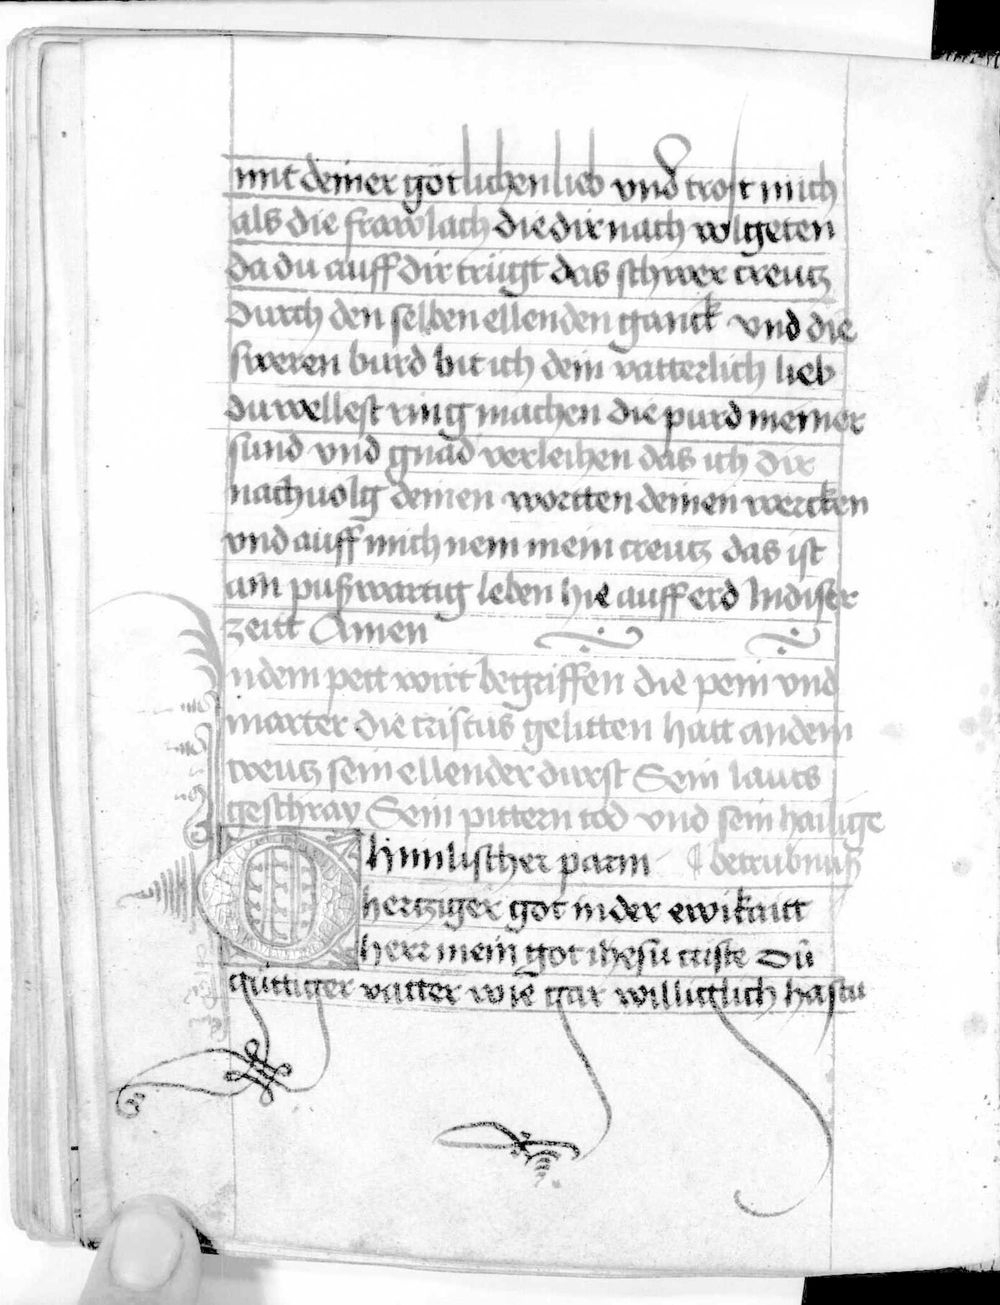 mit deiner götlichen lieb vnd trost mich
als die frawlach die dir nach volgeten
da du auff dir trügt das schwer creutz
durch den selben ellenden ganck vnd die
sweren burd bit ich dein vatterlich lieb
du wellest ring machen die purd meiner
sund vnd gnad verleihen das ich dir
nachuolg deinen wortten deinen wercken
vnd auff mich nem mein creutz das ist
ain pußwartig leben hie auff erd In diser
zeitt Amen
n dem pett wirt begriffen die pein vnd
marter die cristus gelitten hatt an dem
creutz sein ellender durst Sein lauts
geschray Sein pittern tod vnd sein hailige
O himlischer parm ¶ betrubnuß
hertziger got in der ewikaitt
herr mein got ihesu criste Dü
güttiger vatter wie gar willigtlich hastu